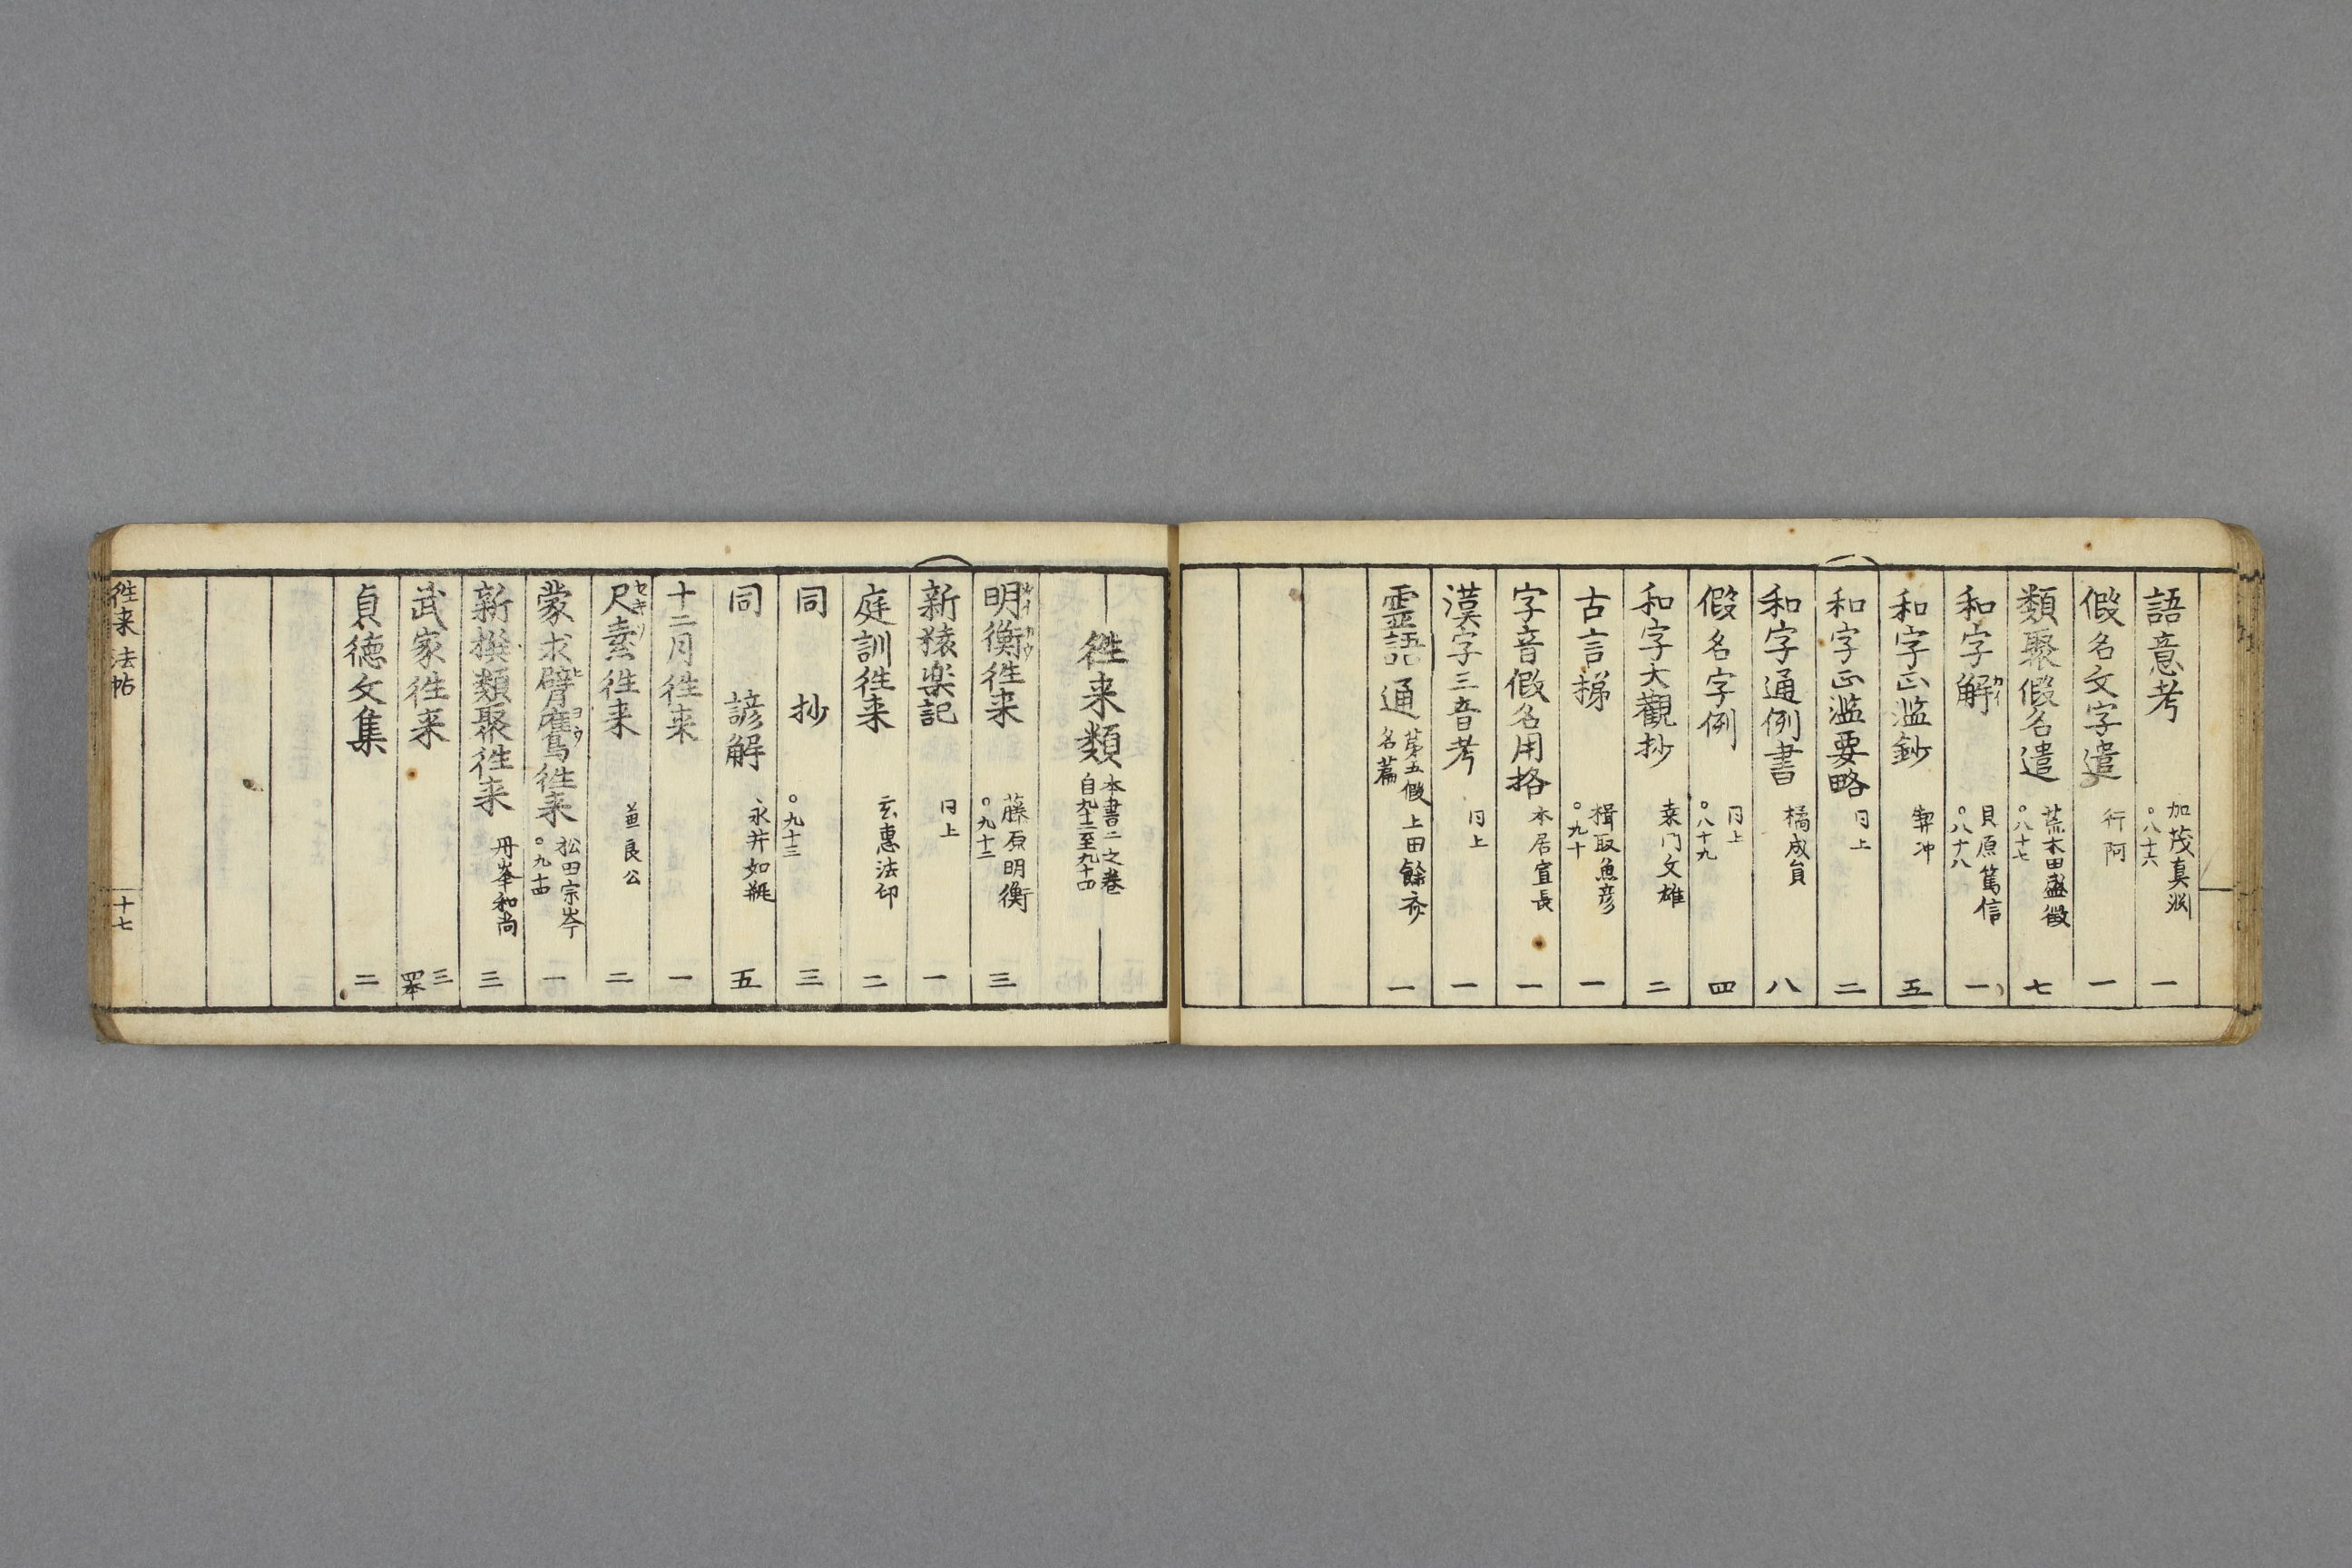 語意考 加茂真淵 ○八十六 一
假名文字遣 行阿 一
類聚假名遣 荒木田盛徴 ○八十七 七
和字解 貝原篤信 ○八十八 一
和字正濫鈔 契冲 五
和字正濫要略 同上 二
和字通例書 橘成員 八
假名字例 同上 ○八十九 四
和字大觀抄 桒門文雄 二
古言梯 楫取魚彦 ○九十 一
字音假名用格 本居宣長 一
漢字三音考 同上 一
霊語通 第五假名篇 上田餘斎 一
徃来類 本書二之巻 自九十二至九十四
明衡徃来 藤原明衡 ○九十二 三
新猿楽記 同上 一
庭訓徃来 玄惠法印 二
同 抄 ○九十三 三
同 諺解 永井如瓶 五
十二月徃来 一
尺素徃来 セキソ 二
蒙求臂鷹徃来 松田宗岑 ○九十四 一
新撰類聚徃来 丹峯和尚 三
武家徃来 三
貞徳文集 二
徃来 法帖 十七